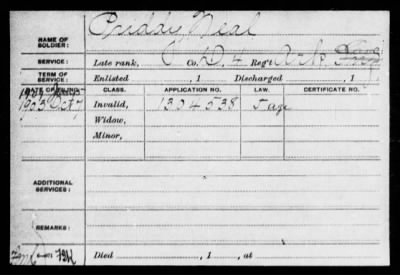 NAME OF SOLDIER: Priddy Neal
SERVICE: Late rank, Co. D, 4 Reg't Ark Cav
TERM OF SERVICE: Enlisted , 1 Discharged , 1
DATE OF FILING. CLASS. APPLICATION NO. LAW. CERTIFICATE NO.
1903 Oct 7 Invalid, 1304538
Widow,
Minor,
ADDITIONAL SERVICES:
REMARKS:
Died , 1 , at